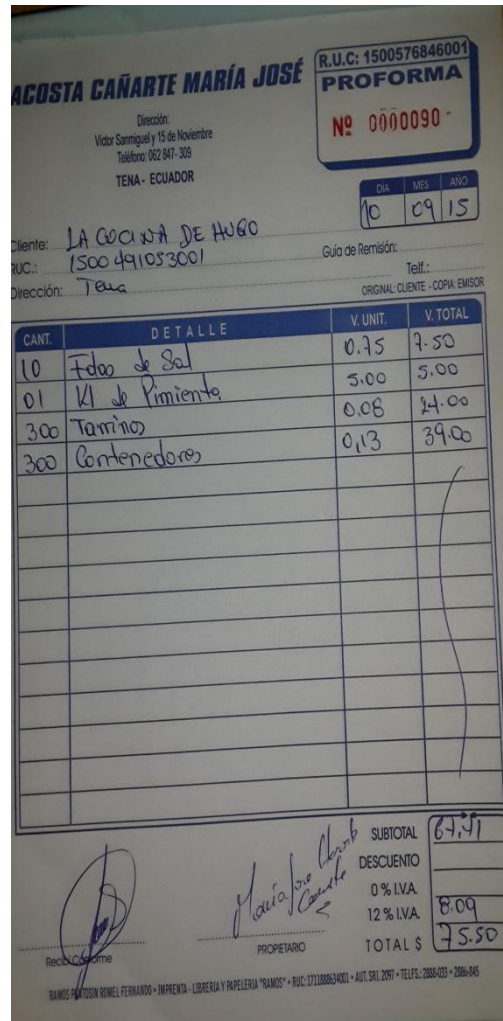 ACOSTA CAÑARTE MARÍA JOSÉ
Dirección:
Victor Sanmiguel y 15 de Noviembre
Teléfono: 062 847- 309
TENA - ECUADOR
R.U.C: 1500576846001
PROFORMA
Nº 0000090
DIA MES AÑO
10 09 15
Cliente: LA COCINA DE HUGO
RUC.: 1500491053001 Guía de Remisión:
Dirección: Tena Telf.:
ORIGINAL: CLIENTE - COPIA: EMISOR
CANT. DETALLE V. UNIT. V. TOTAL
10 Fdas de Sal 0.75 7.50
01 Kl de Pimienta 5.00 5.00
300 Tarrinos 0,08 24.00
300 Contenedores 0,13 39.00
SUBTOTAL 67,41
DESCUENTO
0 % I.V.A.
12 % I.V.A. 8.09
TOTAL $ 75.50
María José
Recibí Conforme PROPIETARIO
RAMOS PANTOSIN ROMEL FERNANDO • IMPRENTA - LIBRERIA Y PAPELERIA "RAMOS" • RUC: 1711888634001 • AUT. SRI. 2097 • TELFS.: 2888-033 • 2886-845